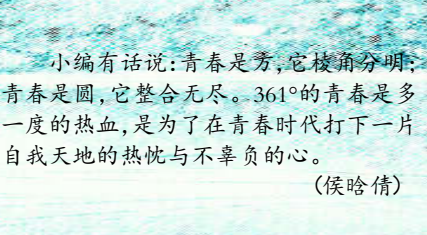 小编有话说:青春是方,它棱角分明;
青春是圆,它整合无尽。361°的青春是多
一度的热血,是为了在青春时代打下一片
自我天地的热忱与不辜负的心。
(侯晗倩)